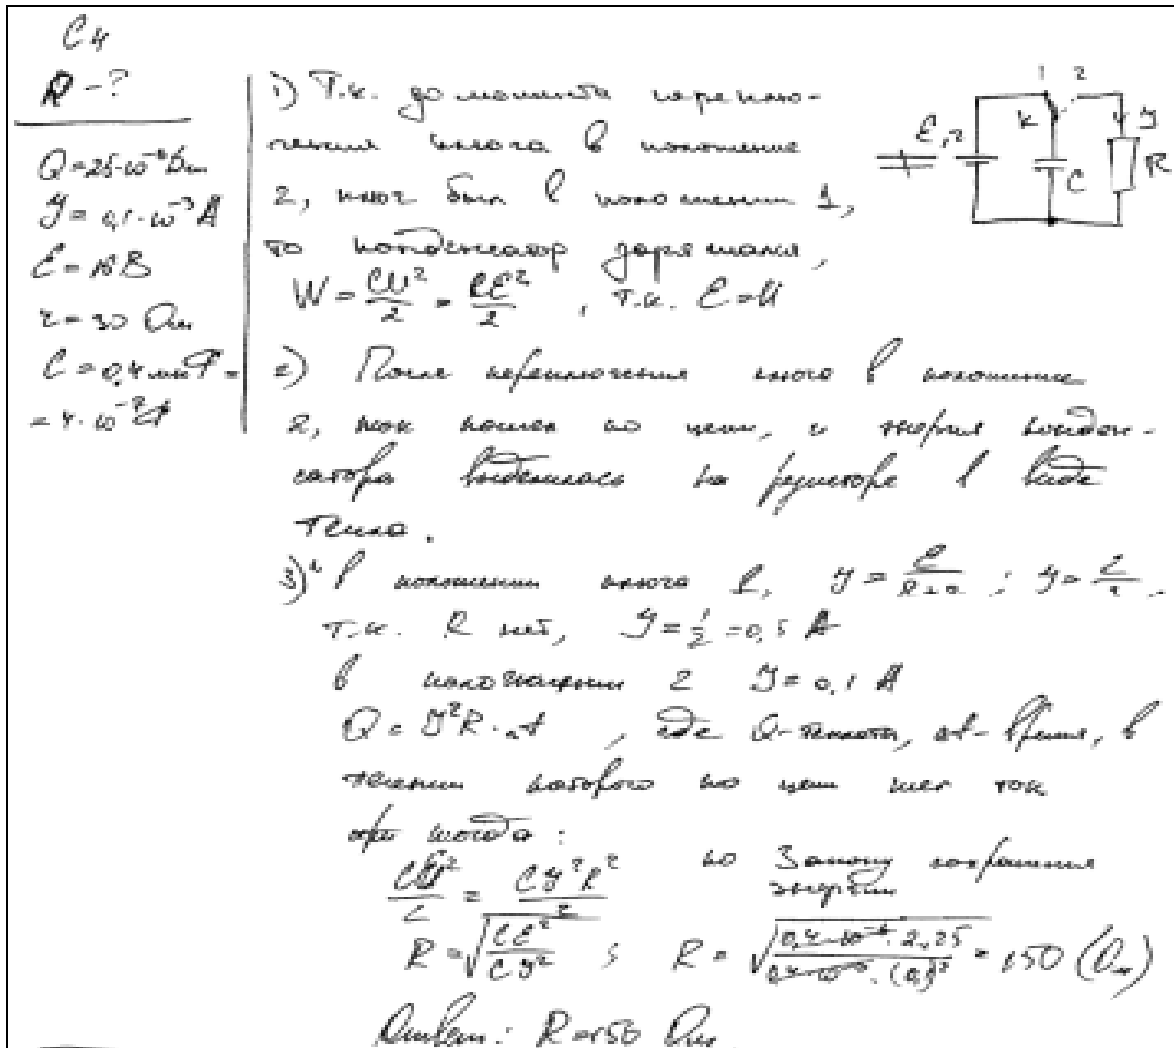 С4
R - ?
I = 0,1·10⁻³ А
r = 30 Ом
C = 0,4 мкФ =
1) Т.к. до момента переклю-
чения ключа в положение
2, ключ был в положении 1,
то конденсатор заряжался,
W = CU²/2 = CE²/2, т.к. E = U
1 2
K
E, r
C
I
R
2) После переключения ключа в положение
2, ток пошел по цепи, и энергия конден-
сатора выделилась на резисторе в виде
тепла.
3) В положении ключа 1, I = E/(R+r); I = E/r
т.к. R нет, = 0,5 А
в положении 2 I = 0,1 А
Q = I²R·Δt, где Q - теплота, Δt - время, в
течении которого по цепи шел ток
тогда:
= CI²R²/2 по Закону сохранения
энергии
R = √(CE²/CI²); R = = 150 (Ом)
Ответ: R = 150 Ом